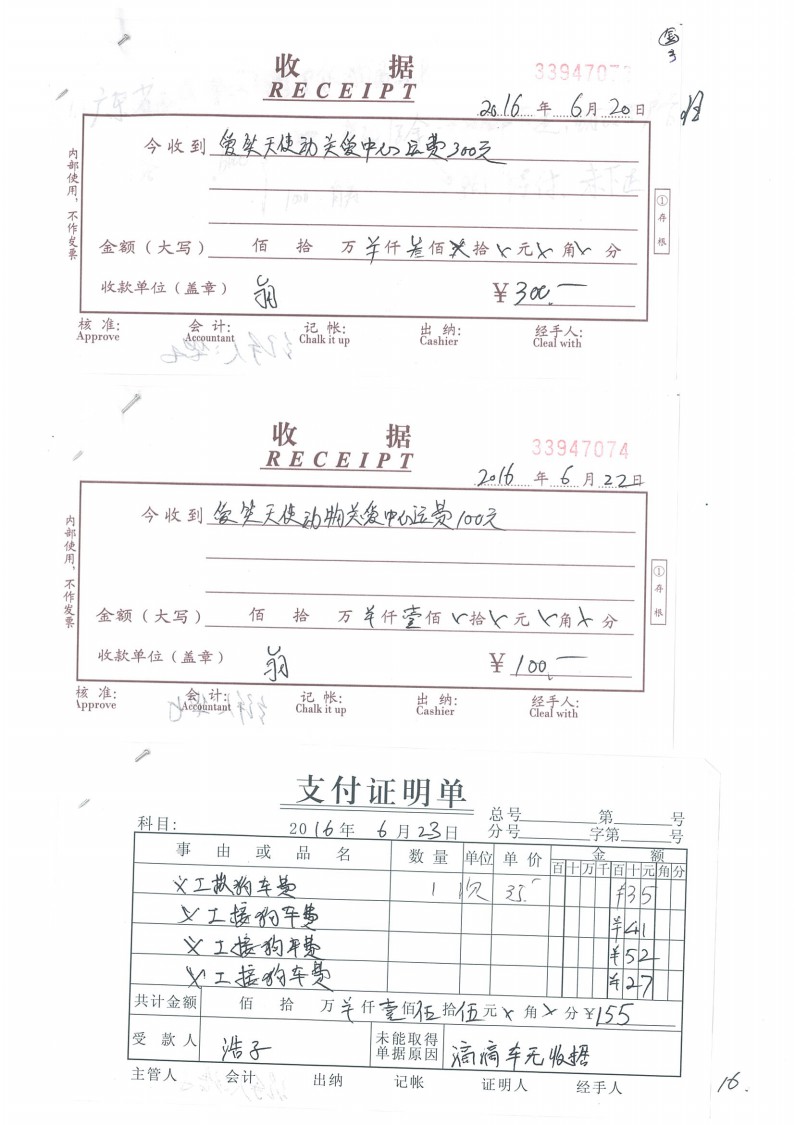 收 据
RECEIPT
3394707
2016 年 6月 20日
今收到 爱笑天使动关爱中心运费300元
金额（大写） 佰 拾 万 羊仟叁佰 拾 元 角 分
收款单位（盖章） ¥ 300.—
核 准: 会 计: 记 帐: 出 纳: 经手人:
Approve Accountant Chalk it up Cashier Cleal with
内部使用，不作发票
①存根
收 据
RECEIPT
33947074
2016 年 6 月 22日
今收到 爱笑天使动物关爱中心运费100元
金额（大写） 佰 拾 万 羊仟壹佰 拾 元 角 分
收款单位（盖章） ¥ 100.—
核 准: 会 计: 记 帐: 出 纳: 经手人:
Approve Accountant Chalk it up Cashier Cleal with
内部使用，不作发票
①存根
支付证明单
总号 第 号
科目: 2016年 6月23日 分号 字第 号
事 由 或 品 名 数 量 单位 单 价 金 额
百十万千百十元角分
义工救狗车费 1 次 35.- ¥35
义工接狗车费 ¥41
义工接狗车费 ¥52
义工接狗车费 ¥27
共计金额 佰 拾 万 羊仟壹佰伍拾伍元 角 分 ¥155
受 款 人 浩子 未能取得单据原因 滴滴车无收据
主管人 会计 出纳 记帐 证明人 经手人
16.